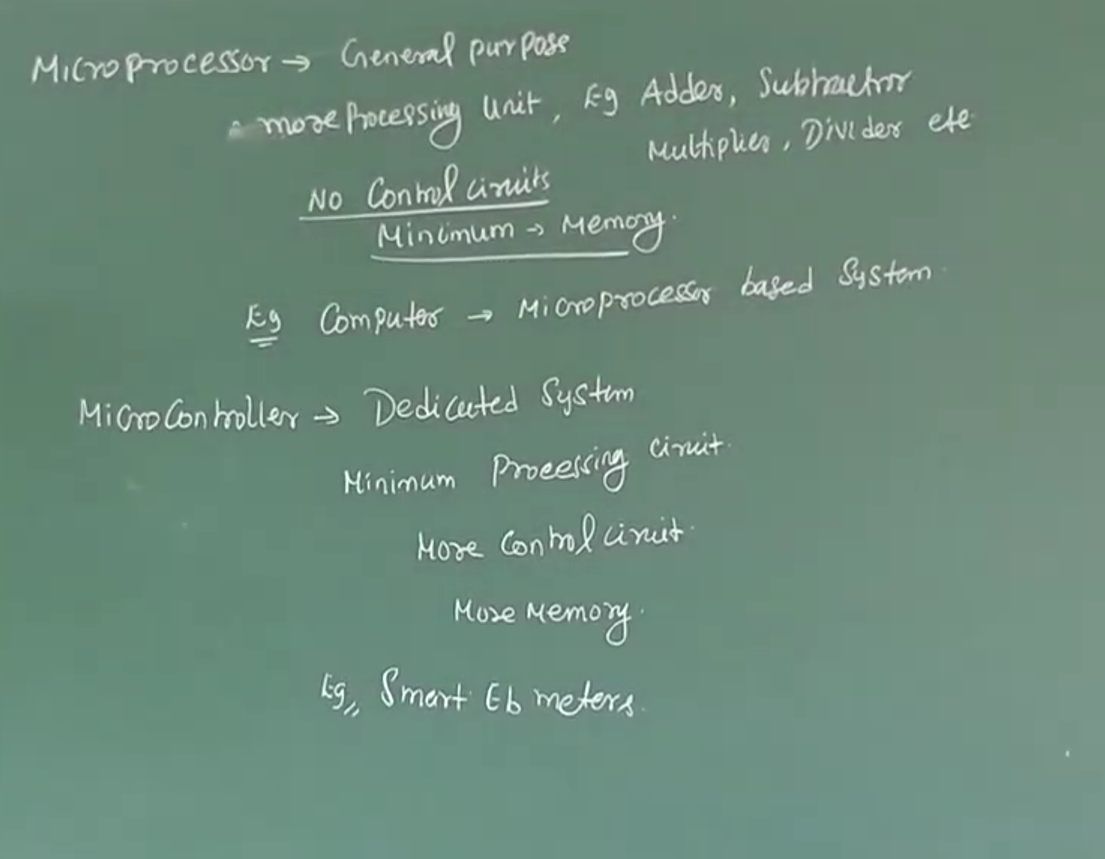 Microprocessor → General purpose
more Processing Unit, Eg Adder, Subtractor
Multiplier, Divider etc
No Control circuits
Minimum → Memory.
Eg Computer → Microprocessor based System.
Microcontroller → Dedicated System
Minimum Processing circuit.
More Control circuit.
More Memory.
Eg,, Smart Eb meters.